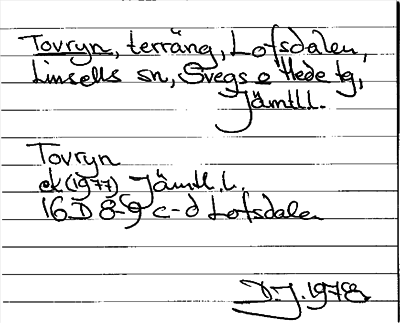 Tovryn, terräng, Lofsdalen,
Linsells sn, Svegs o Hede tg,
Jämtl.l.
Tovryn
ek (1977) Jämtl.l.
16D 8-9 c-d Lofsdalen
D.J. 1978